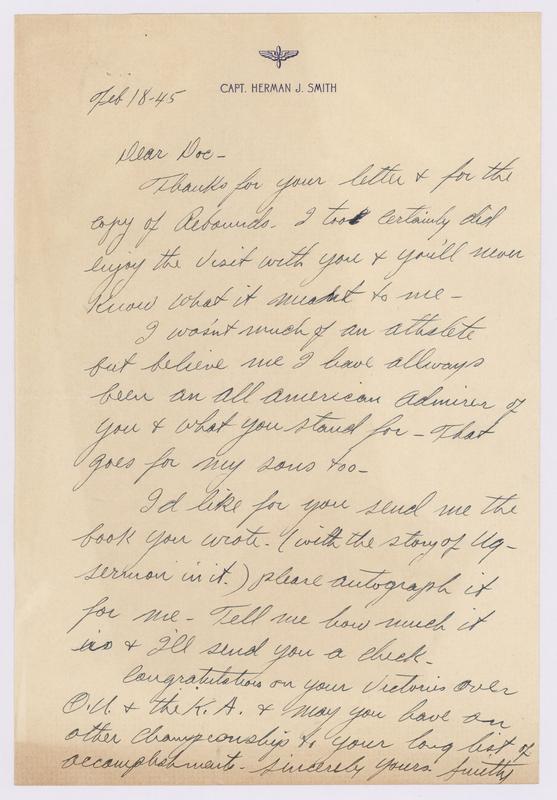 CAPT. HERMAN J. SMITH
Feb 18-45
Dear Doc-
Thanks for your letter & for the
copy of Rebounds. I too certainly did
enjoy the visit with you & you'll never
know what it meant to me-
I wasn't much of an athlete
but believe me I have allways
been an all american admirer of
you & what you stand for - That
goes for my sons too-
I'd like for you send me the
book you wrote. (with the story of
sermon in it.) please autograph it
for me- Tell me how much it
is & I'll send you a check-
Congratulations on your Victories over
O.U. & the K.A. & may you have an
other championship to your long list of
accomplishments- Sincerely yours Smith